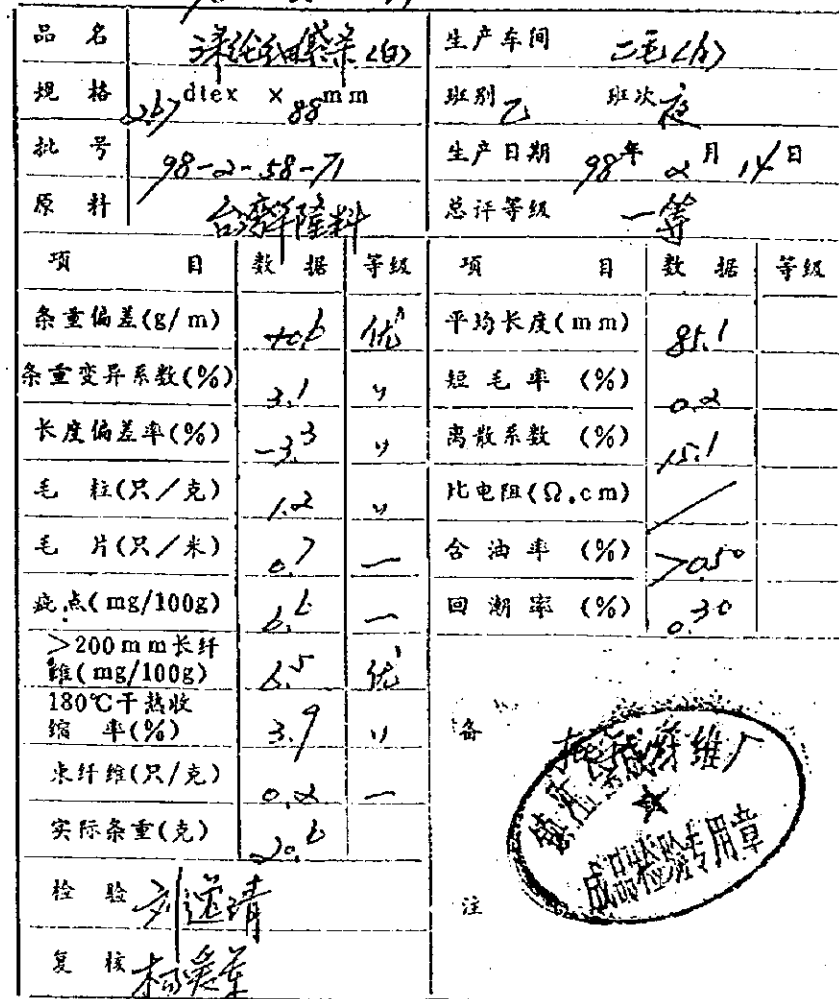 品 名 涤纶细袋条(白) 生产车间 二毛
规 格 2.67 dtex × 88 mm 班别 乙 班次 夜
批 号 98-2-58-71 生产日期 98年 2月 14日
原 料 台湾 料 总评等级 一等
项 目 数 据 等级 项 目 数 据 等级
条重偏差(g/m) +0.6 优 平均长度(mm) 85.1
条重变异系数(%) 3.1 〃 短毛率 (%) 0.2
长度偏差率(%) -3.3 〃 离散系数 (%) 15.1
毛 粒(只/克) 1.2 〃 比电阻(Ω.cm) /
毛 片(只/米) 0.7 一 含油率 (%) >0.50
疵点(mg/100g) 6.6 一 回潮率 (%) 0.30
>200mm长纤
维(mg/100g) 6.5 优
180℃干热收
缩 率(%) 3.9 〃
末纤维(只/克) 0.2 一
实际条重(克) 20.6
检 验
复 核
备
注
镇江合成纤维厂
成品检验专用章